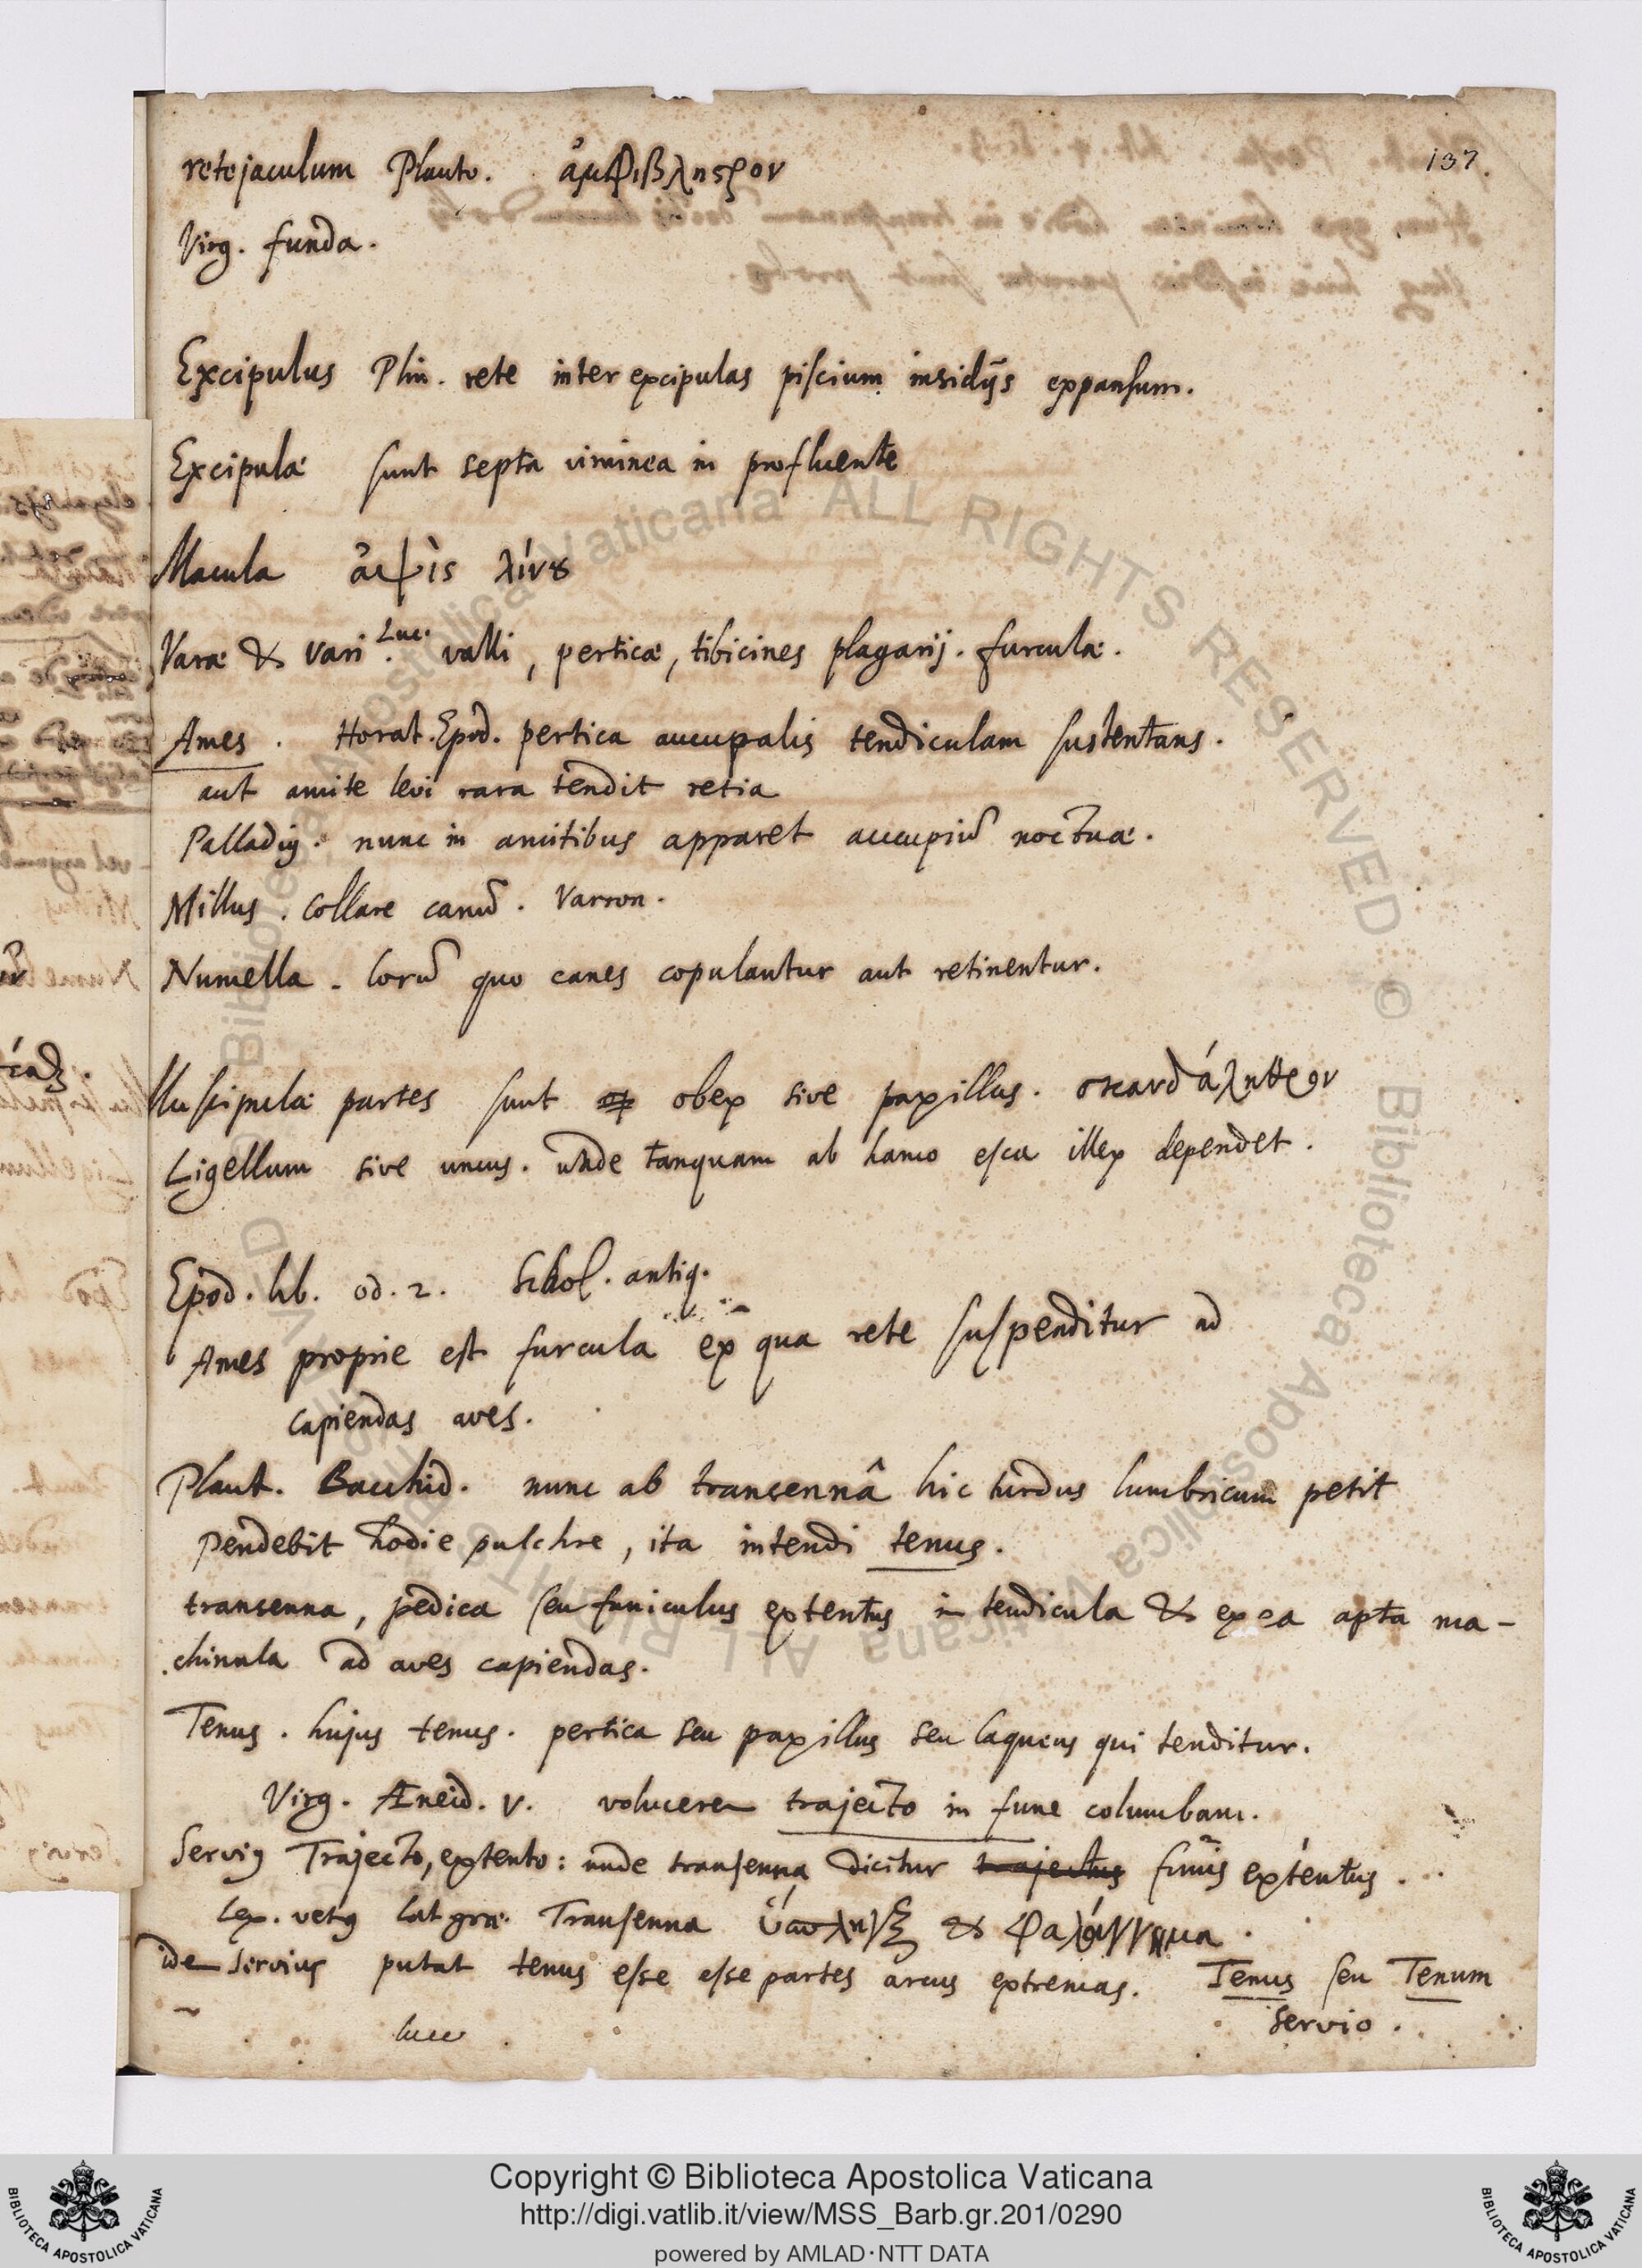 137.
retejaculum Plauto. ἀμφίβληςρον
Virg. funda.
Excipulus Plin. rete inter excipulas piscium insidijs expansum.
Excipulæ sunt septa viminea in profluente
Macula ἁψὶς λίνȣ
Varæ & vari Luc. valli, perticæ, tibicines plagarij. furculæ.
Ames. Horat. Epod. pertica aucupalis tendiculam sustentans.
aut amite levi rara tendit retia
Palladiꝰ. nunc in amitibus apparet aucupiũ noctuæ.
Millus. Collare canũ. Varron.
Numella. lorũ quo canes copulantur aut retinentur.
Muscipulæ partes sunt obex sive paxillus. σκανδάληθρον
Ligellum sive uncus. unde tanquam ab hamo esca illex dependet.
Epod. lib. od. 2. Schol. antiq.
Ames proprie est furcula ex qua rete suspenditur ad
capiendas aves.
Plaut. Bacchid. nunc ab transennâ hic turdus lumbricum petit
pendebit hodie pulchre, ita intendi tenus.
transenna, pedica seu funiculus extentus in tendicula & ex ea apta ma-
chinula ad aves capiendas.
Tenus. hujus tenus. pertica seu paxillus seu laqueus qui tenditur.
Virg. Æneid. V. volucrem trajecto in fune columbam.
Serviꝰ Trajecto, extento: unde transenna dicitur trajectus funis extentus.
Lex. vetꝰ lat græ. Transenna &
idẽ Servius putat tenus esse esse partes arcus extremas. Tenus seu Tenum
Servio.
Copyright © Biblioteca Apostolica Vaticana
http://digi.vatlib.it/view/MSS_Barb.gr.201/0290
powered by AMLAD·NTT DATA
BIBLIOTECA APOSTOLICA VATICANA
BIBLIOTECA APOSTOLICA VATICANA